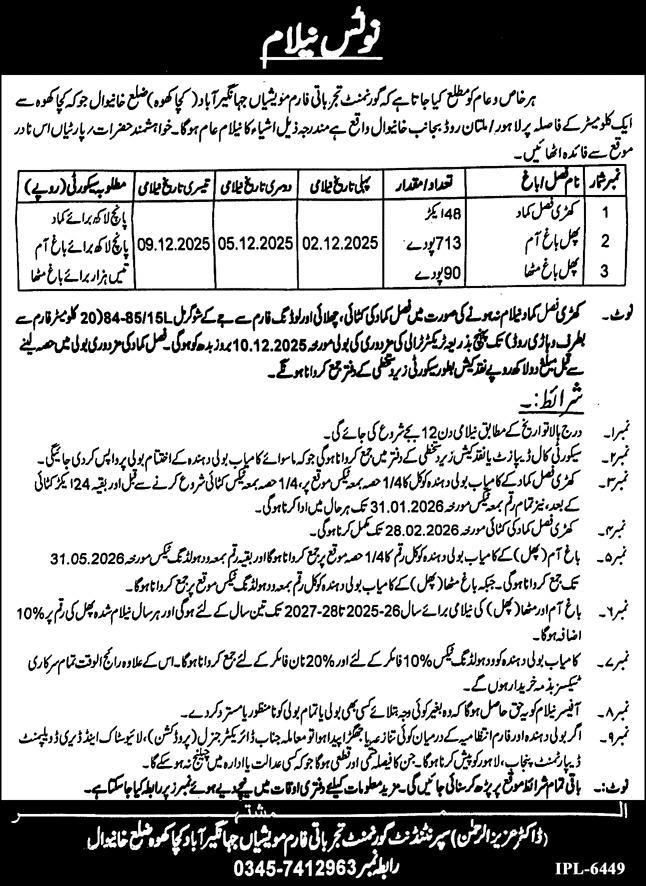 نوٹس نیلام
ہر خاص و عام کو مطلع کیا جاتا ہے کہ گورنمنٹ تجرباتی فارم مویشیاں جہانگیر آباد (کچا کھوہ) ضلع خانیوال جو کہ کچا کھوہ سے
ایک کلومیٹر کے فاصلہ پر لاہور / ملتان روڈ بجانب خانیوال واقع ہے مندرجہ ذیل اشیاء کا نیلام عام ہوگا۔ خواہشمند حضرات / پارٹیاں اس نادر
موقع سے فائدہ اٹھائیں۔
نمبر شمار نام فصل / باغ تعداد / مقدار پہلی تاریخ نیلامی دوسری تاریخ نیلامی تیسری تاریخ نیلامی مطلوبہ سیکورٹی (روپے)
1 کھڑی فصل کماد 48 ایکڑ پانچ لاکھ برائے کماد
2 پھل باغ آم 713 پودے 02.12.2025 05.12.2025 09.12.2025 پانچ لاکھ برائے باغ آم
3 پھل باغ مٹھا 90 پودے تیس ہزار برائے باغ مٹھا
نوٹ۔ کھڑی فصل کماد نیلام نہ ہونے کی صورت میں فصل کماد کی کٹائی، چھلائی اور لوڈنگ فارم سے جے کے شوگر مل 84-85/15L (20 کلومیٹر فارم سے
بطرف وہاڑی روڈ) تک پہنچ بذریعہ ٹریکٹر ٹرالی کی مزدوری کی بولی مورخہ 10.12.2025 بروز بدھ کو ہوگی۔ فصل کماد کی مزدوری بولی میں حصہ لینے
سے قبل مبلغ دو لاکھ روپے نقد کیش بطور سیکورٹی زیر دستخطی کے دفتر جمع کروانا ہونگے۔
شرائط:۔
نمبر۱۔ درج بالا تواریخ کے مطابق نیلامی دن 12 بجے شروع کی جائے گی۔
نمبر۲۔ سیکورٹی کال ڈیپازٹ یا نقد کیش زیر دستخطی کے دفتر میں جمع کروانا ہوگی جو کہ ماسوائے کامیاب بولی دہندہ کے اختتام بولی پر واپس کر دی جائیگی۔
نمبر۳۔ کھڑی فصل کماد کے کامیاب بولی دہندہ کو کل کا 1/4 حصہ بمعہ ٹیکس موقع پر، 1/4 حصہ بمعہ ٹیکس کٹائی شروع کرنے سے قبل اور بقیہ 24 ایکڑ کٹائی
کے بعد، نیز تمام رقم بمعہ ٹیکس مورخہ 31.01.2026 تک ہر حال میں ادا کرنا ہوگی۔
نمبر۴۔ کھڑی فصل کماد کی کٹائی مورخہ 28.02.2026 تک مکمل کرنا ہوگی۔
نمبر۵۔ باغ آم (پھل) کے کامیاب بولی دہندہ کو کل رقم کا 1/4 حصہ موقع پر جمع کروانا ہوگا اور بقیہ رقم بمعہ ود ہولڈنگ ٹیکس مورخہ 31.05.2026
تک جمع کروانا ہوگی۔ جبکہ باغ مٹھا (پھل) کے کامیاب بولی دہندہ کو کل رقم بمعہ ود ہولڈنگ ٹیکس موقع پر جمع کروانا ہوگا۔
نمبر۶۔ باغ آم اور مٹھا (پھل) کی نیلامی برائے سال 2025-26 تا 2027-28 تک تین سال کے لئے ہوگی اور ہر سال نیلام شدہ پھل کی رقم پر 10%
اضافہ ہوگا۔
نمبر۷۔ کامیاب بولی دہندہ کو ود ہولڈنگ ٹیکس 10% فائلر کے لئے اور 20% نان فائلر کے لئے جمع کروانا ہوگا۔ اس کے علاوہ رائج الوقت تمام سرکاری
ٹیکسز بذمہ خریدار ہوں گے۔
نمبر۸۔ آفیسر نیلام کو یہ حق حاصل ہوگا کہ وہ بغیر کوئی وجہ بتلائے کسی بھی بولی یا تمام بولی کو نامنظور یا مسترد کر دے۔
نمبر۹۔ اگر بولی دہندہ اور فارم انتظامیہ کے درمیان کوئی تنازعہ یا جھگڑا پیدا ہوا تو معاملہ جناب ڈائریکٹر جنرل (پروڈکشن)، لائیو سٹاک اینڈ ڈیری ڈویلپمنٹ
ڈیپارٹمنٹ پنجاب، لاہور کو پیش کرنا ہوگا۔ جن کا فیصلہ حتمی اور قطعی ہوگا جو کہ کسی عدالت یا ادارہ میں چیلنج نہ ہو سکے گا۔
نوٹ:۔ باقی تمام شرائط موقع پر پڑھ کر سنائی جائیں گی۔ مزید معلومات کیلئے دفتری اوقات میں نیچے دیے ہوئے نمبرز پر رابطہ کیا جا سکتا ہے۔
المشتہر
(ڈاکٹر عزیز الرحمٰن) سپرنٹنڈنٹ گورنمنٹ تجرباتی فارم مویشیاں جہانگیر آباد کچا کھوہ ضلع خانیوال
رابطہ نمبر 0345-7412963
IPL-6449